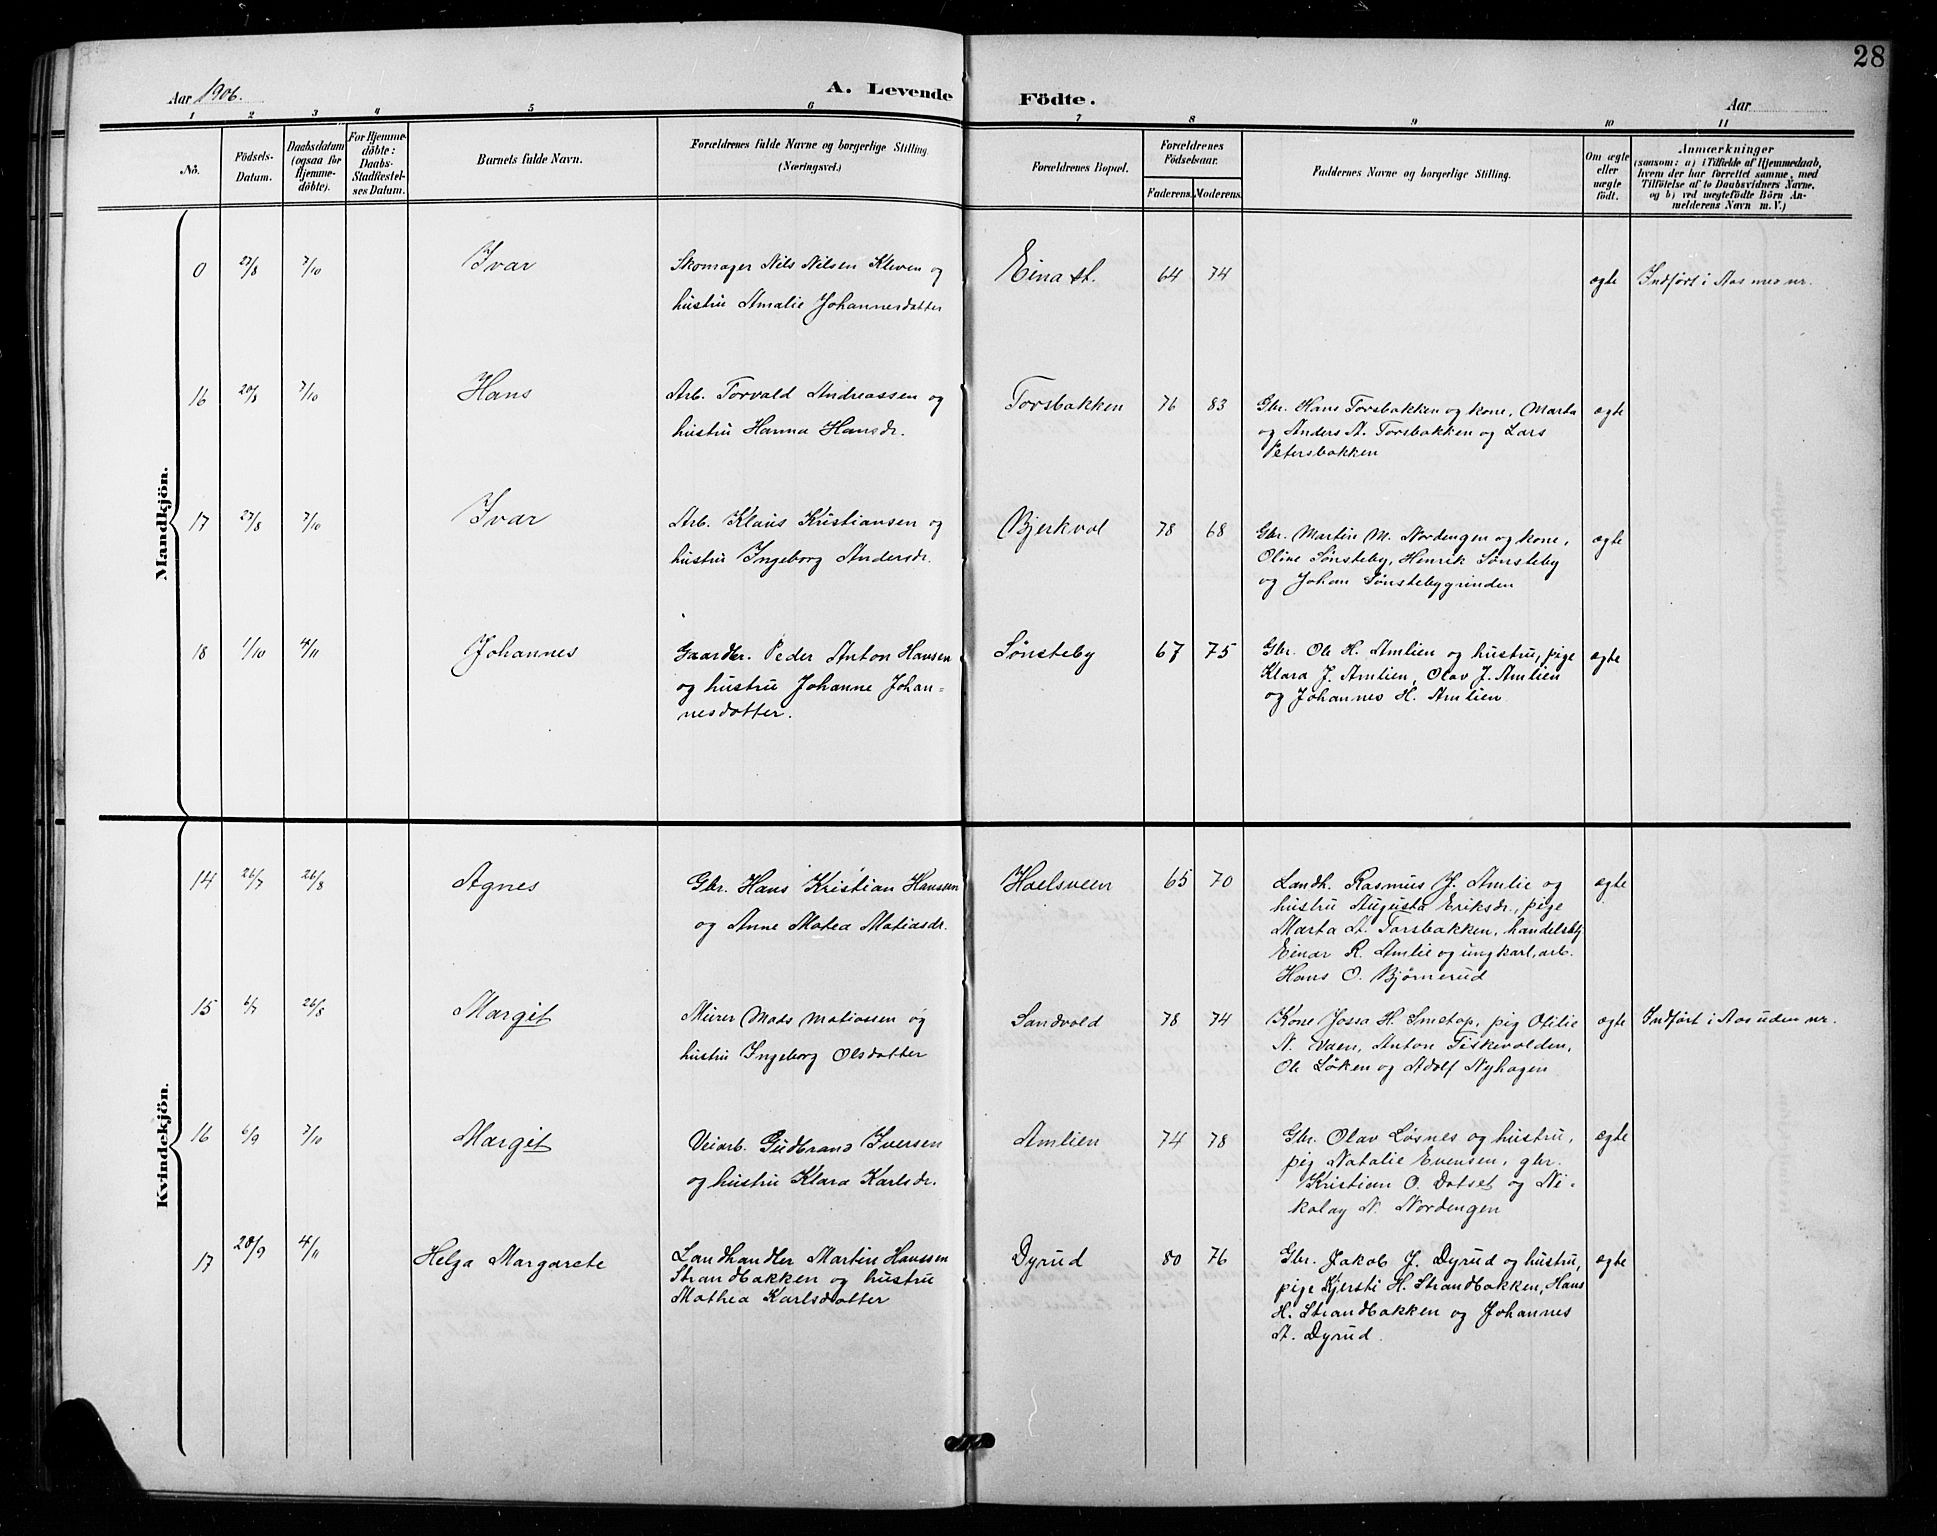 28
Aar 1906.
A. Levende Födte.
Aar
1 2 3 4 5 6 7 8 9 10 11
No.
Födsels-
Datum.
Daabsdatum
(ogsaa for
Hjemme-
döbte).
For Hjemme-
döbte:
Daabs-
Stadfæstel-
ses Datum.
Barnets fulde Navn.
Forældrenes fulde Navne og borgerlige Stilling.
(Næringsvei.)
Forældrenes Bopæl.
Forældrenes
Födselsaar.
Faderens. Moderens.
Faddernes Navne og borgerlige Stilling.
Om ægte
eller
uægte
født.
Anmærkninger
(saasom: a) i Tilfælde af Hjemmedaab,
hvem der har forrettet samme, med
Tilföielse af to Daabsvidners Navne,
og b) ved uægtefödte Börn An-
melderens Navn m. V.)
Mandkjön.
0 27/8 7/10 Ivar
Skomager Nils Nilsen Kleven og
hustru Amalie Johannesdatter
Eina st. 64 74 ægte Indført i Aas med nr.
16 20/8 7/10 Hans
Arb. Torvald Andreassen og
hustru Hanna Hansdr.
Torsbakken 76 83
Gbr. Hans Torsbakken og kone, Marta
og Anders A. Torsbakken og Lars
Petersbakken
ægte
17 27/8 7/10 Ivar
Arb. Klaus Kristiansen og
hustru Ingeborg Andersdr.
Bjerkvol 78 68
Gbr. Martin M. Nordengen og kone,
Oline Sønsteby, Henrik Sønsteby
og Johan Sønstebygrinden
ægte
18 1/10 4/11 Johannes
Gaardbr. Peder Anton Hansen
og hustru Johanne Johan-
nesdatter.
Sønsteby 67 75
Gbr. Ole H. Amlien og hustru, pige
Klara J. Amlien, Olav J. Amlien
og Johannes H. Amlien
ægte
Kvindekjön.
14 26/7 26/8 Agnes
Gbr. Hans Kristian Hansen
og Anne Matea Matiasdr.
Hoelsveen 65 70
Landh. Rasmus J. Amlie og
hustru Augusta Eriksdr., pige
Marta A. Torsbakken, handelsbtj
Einar R. Amlie og ungkarl, arb.
Hans O. Bjørnerud
ægte
15 6/7 26/8 Margit
Murer Mads Matiassen og
hustru Ingeborg Olsdatter
Sandvold 78 74
Kone Jossa H. Smetop, pig Otilie
N. Vaen, Anton Fiskevolden,
Ole Løken og Adolf Nyhagen
ægte Indført i Aas uden nr.
16 6/9 7/10 Margit
Veiarb. Gudbrand Iversen
og hustru Klara Karlsdr.
Amlien 74 78
Gbr. Olav Løsnes og hustru,
pig Natalie Evensen, gbr.
Kristian O. Dotset og Ni-
kolay N. Nordengen
ægte
17 20/9 4/11 Helga Margarete
Landhandler Martin Hanssen
Strandbakken og hustru
Mathea Karlsdatter
Dyrud 80 76
Gbr. Jakob J. Dyrud og hustru,
pige Kjersti H. Strandbakken, Hans
H. Strandbakken og Johannes
A. Dyrud.
ægte